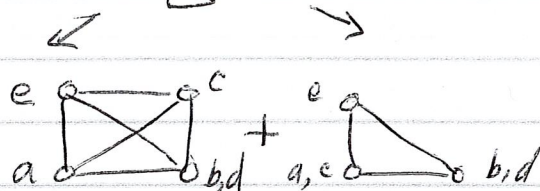 e c e
+
a b,d a,c b,d